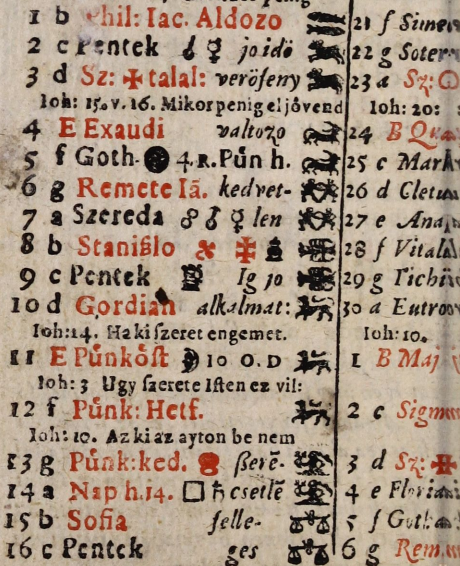 1 b Phil: Iac. Aldozo
2 c Pentek ♂ ☿ jo idö
3 d Sz: ✠ talal: veröfeny
Ioh: 15. v. 16. Mikor penig el jövend
4 E Exaudi valtozo
5 f Goth. 4. R. Pün h.
6 g Remete Iã. kedvet-
7 a Szereda ☍ ♂ ☿ len
8 b Stanißlo ✠
9 c Pentek Ig jo
10 d Gordian alkalmat:
Ioh: 14. Ha ki szeret engemet.
11 E Pünköst 10 O. D
Ioh: 3 Ugy szerete Isten ez vil:
12 f Pünk: Hetf.
Ioh: 10. Az ki az ayton be nem
13 g Pünk: ked. ßerẽ-
14 a Nap h. 14. □ ♄ csetlẽ
15 b Sofia felle-
16 c Pentek ges
21 f
22 g
23 a Sz:
Ioh: 20:
24 B
25 c
26 d
27 e
28 f
29 g
30 a
Ioh: 10.
1 B
2 c
3 d Sz: ✠
4 e
5 f
6 g